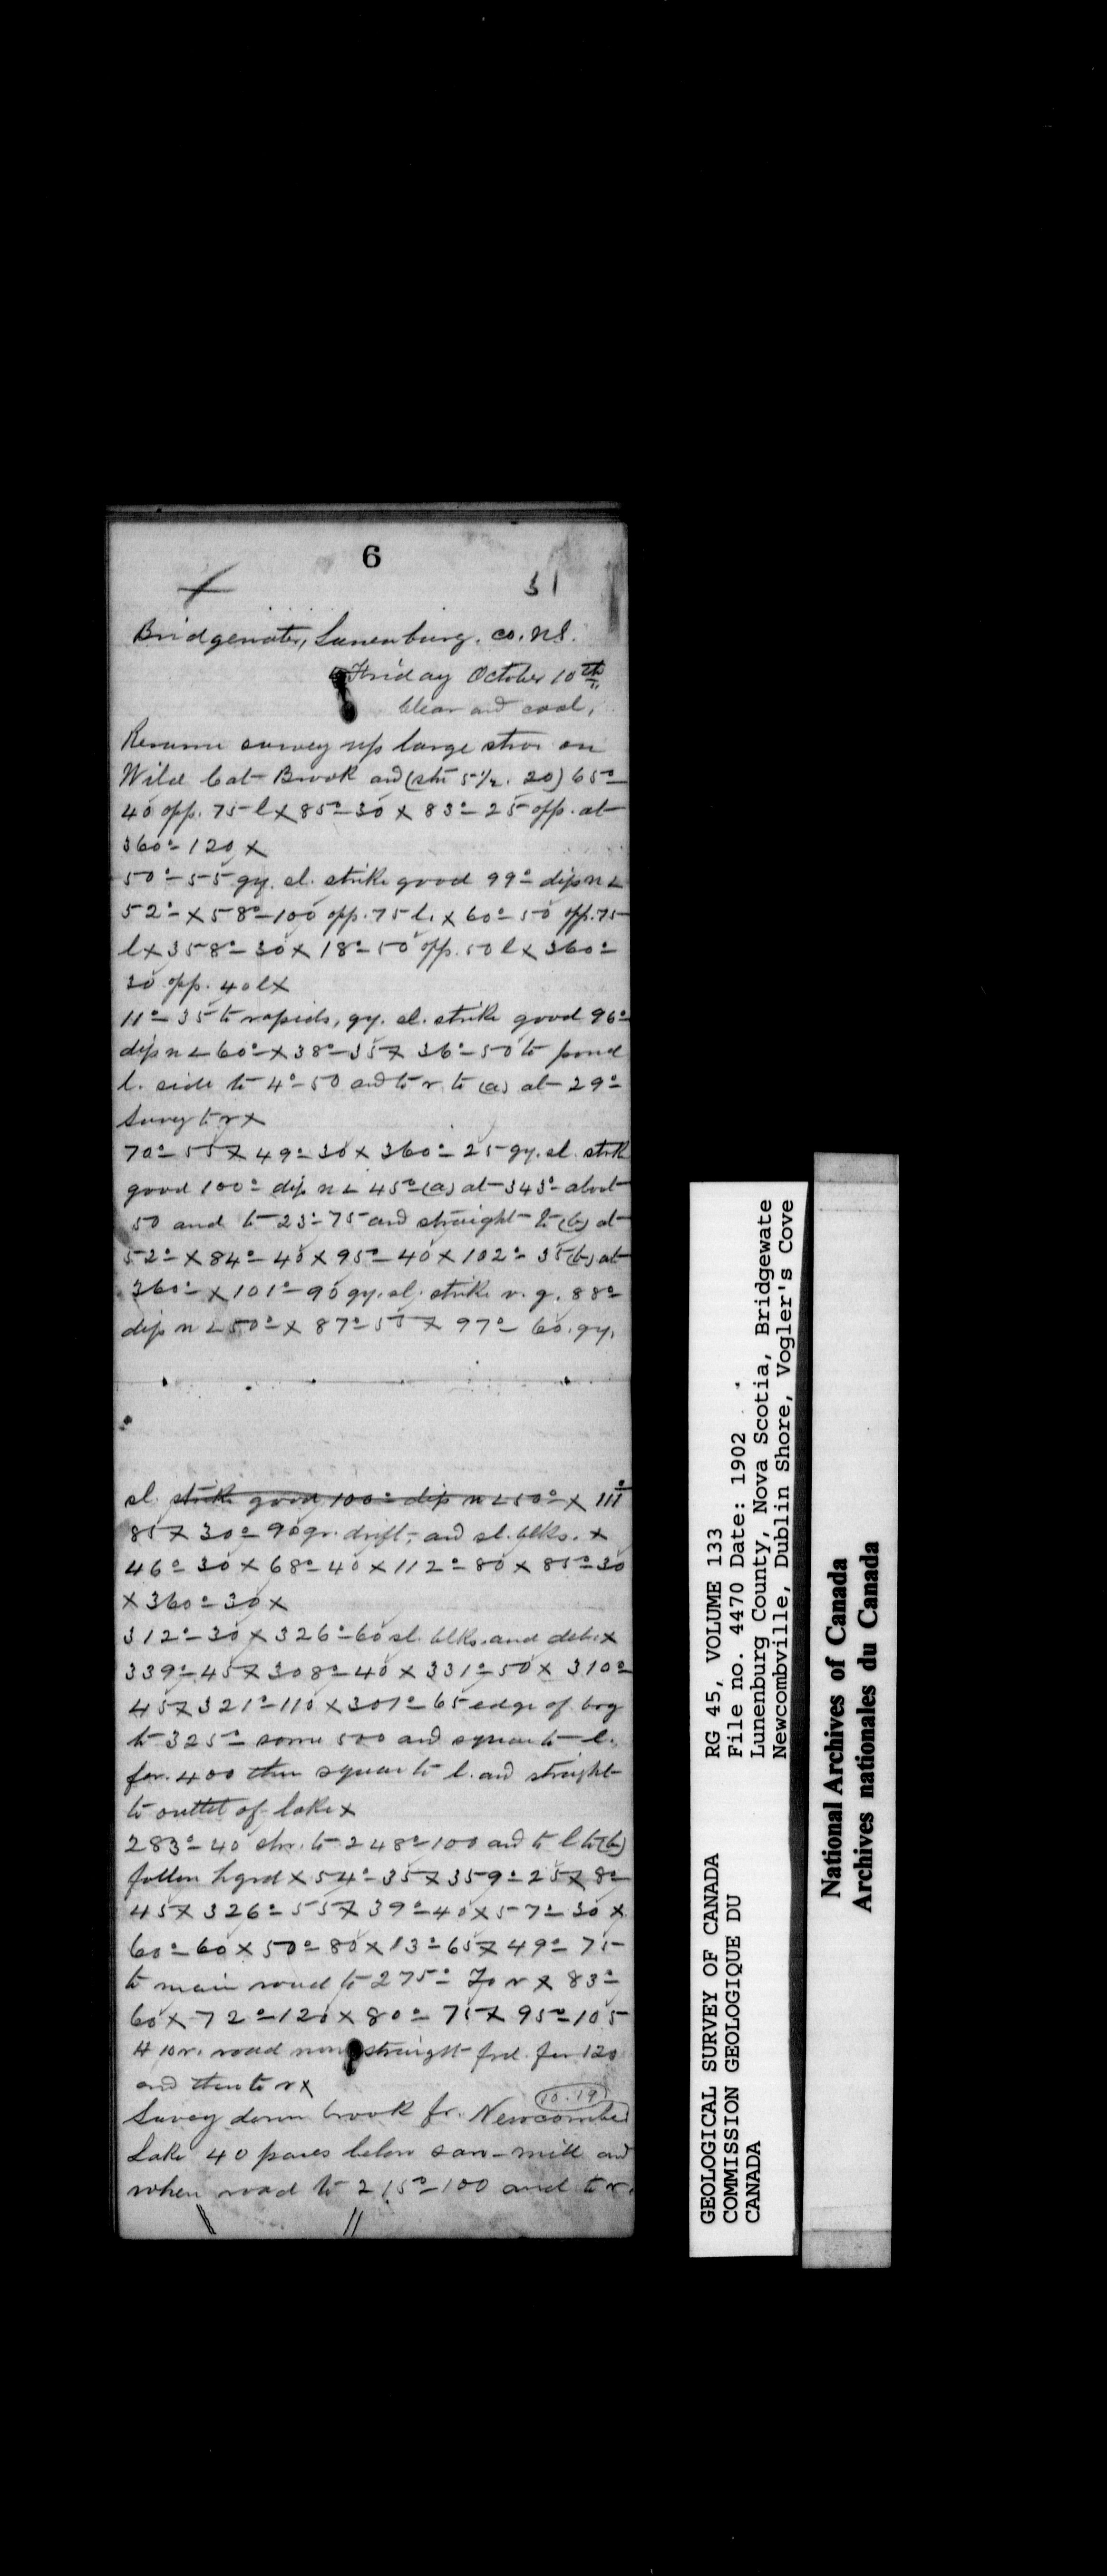 6
51
Bridgewater, Lunenburg. co. N.S.
Friday October 10th
Clear and cool,
Resume survey up large stm on
Wild Cat Brook and (stm 5½. 20) 65°-
40 opp. 75 l x 85°-30 x 83°-25 opp. at
360°-120 x
50°-55 gy. sl. strike good 99° dip n L
52°- x 58°-100 opp. 75 l. x 60°-50 opp. 75
l x 358°-30 x 18°-50 opp. 50 l x 360°-
30 opp. 40 l x
11°-35 to rapids, gy. sl. strike good 96°
dip n L 60°- x 38°-35 x 36°-50 to pond
l. side to 4°-50 and to r. to (a) at 29°
Survey to r x
70°-55 x 49°-30 x 360°-25 gy. sl. strike
good 100° dip n L 45° (a) at 343° about
50 and to 23°-75 and straight to (b) at
52°- x 84°-40 x 95°-40 x 102°-35 (b) at
360°- x 101°-90 gy. sl. strike v. g. 88°
dip n L 50°- x 87°-55 x 97°-60. gy.
sl. strike good 100° dip n L 50°- x 111°
85 x 30°-90 gr. drift, and sl. blks. x
46°-30 x 68°-40 x 112°-80 x 85°-30
x 360°-30 x
312°-30 x 326°-60 sl. blks. and debx
339°-45 x 308°-40 x 331°-50 x 310°
45 x 321°-110 x 301°-65 edge of bog
to 325°- some 500 and square to l.
for. 400 then square to l. and straight
to outlet of lake x
283°-40 str. to 248°-100 and to l to (b)
follow hyrd x 54°-35 x 359°-25 x 8°-
45 x 326°-55 x 39°-40 x 57°-30 x
60°-60 x 50°-80 x 13°-65 x 49°-75
to main road to 275° To r x 83°-
60 x 72°-120 x 80°-75 x 95°-105
road straight frd. for 120
and then to r x
10.19
Survey down brook fr. Newcombe
Lake 40 paces below saw-mill and
when road to 215°-100 and to r.
GEOLOGICAL SURVEY OF CANADA
COMMISSION GEOLOGIQUE DU
CANADA
RG 45, VOLUME 133
File no. 4470 Date: 1902
Lunenburg County, Nova Scotia, Bridgewate
Newcombville, Dublin Shore, Vogler's Cove
National Archives of Canada
Archives nationales du Canada